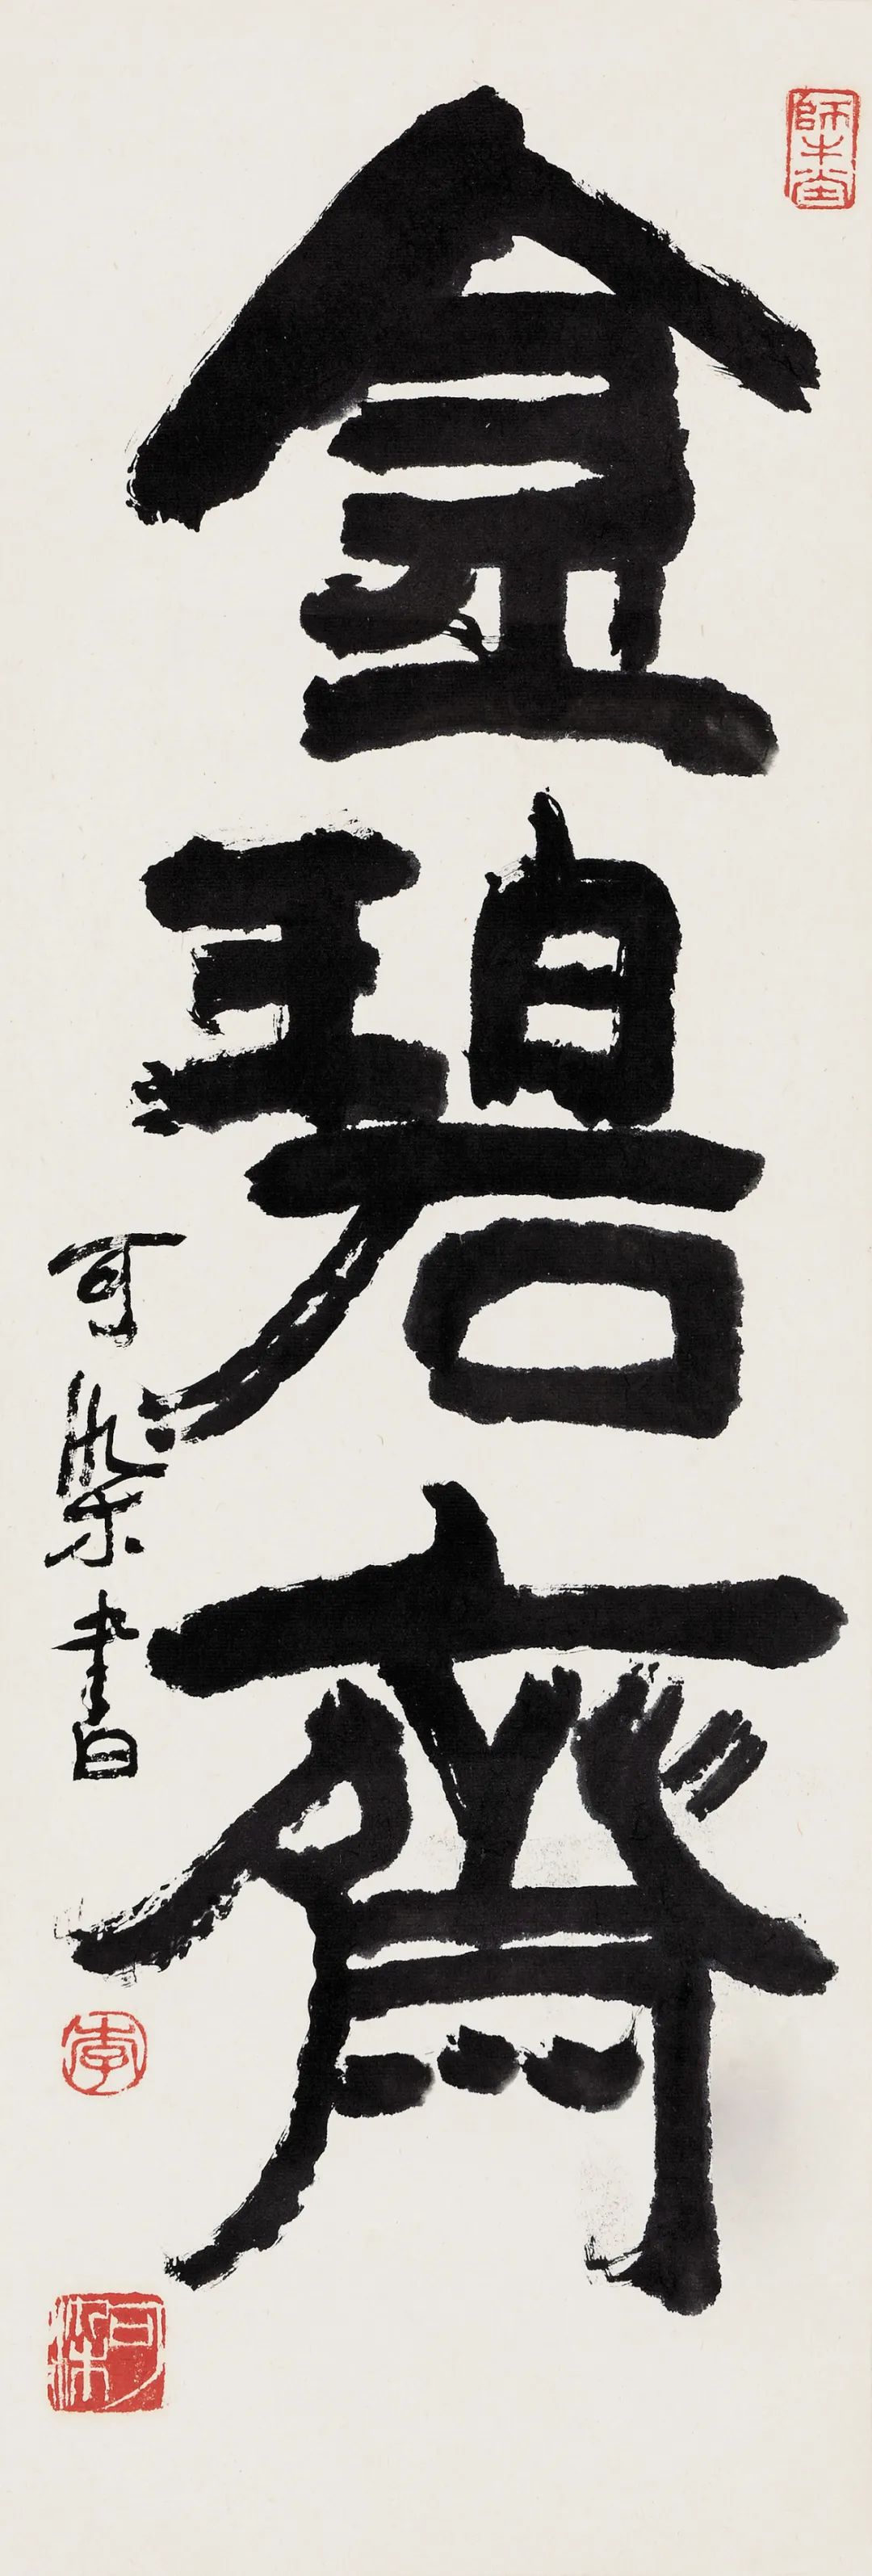 師牛堂
金碧齋
可染書
李
可染